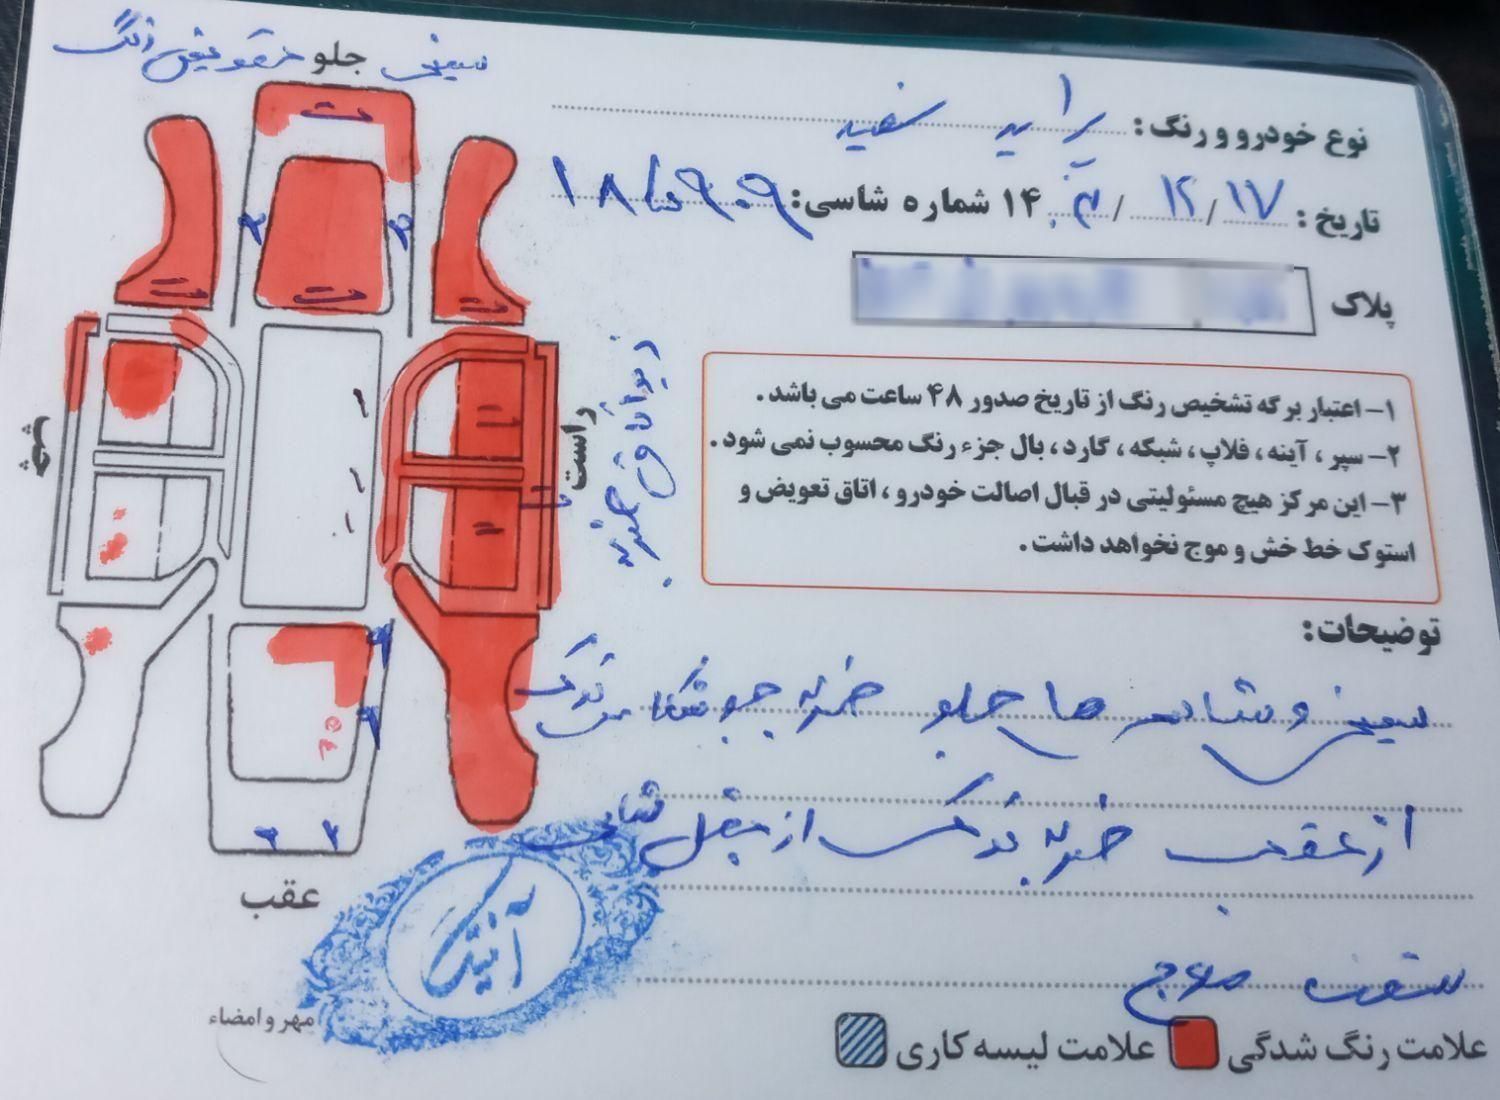 سینی جلو تعویض رنگ
نوع خودرو و رنگ: پراید سفید
تاریخ: ۱۷/ ۱۲/ ۱۴۰۳ شماره شاسی:
پلاک
راست
چپ
دیواتاق ضربه
۱- اعتبار برگه تشخیص رنگ از تاریخ صدور ۴۸ ساعت می باشد.
۲- سپر ، آینه ، فلاپ ، شبکه ، گارد ، بال جزء رنگ محسوب نمی شود.
۳- این مرکز هیچ مسئولیتی در قبال اصالت خودرو ، اتاق تعویض و
استوک خط خش و موج نخواهد داشت.
توضیحات:
سینی و شاسی ها جلو ضربه جوشکاری
از عقب ضربه از بغل شاسی
سقف موج
عقب
آنتیک
مهر و امضاء
علامت رنگ شدگی
علامت لیسه کاری